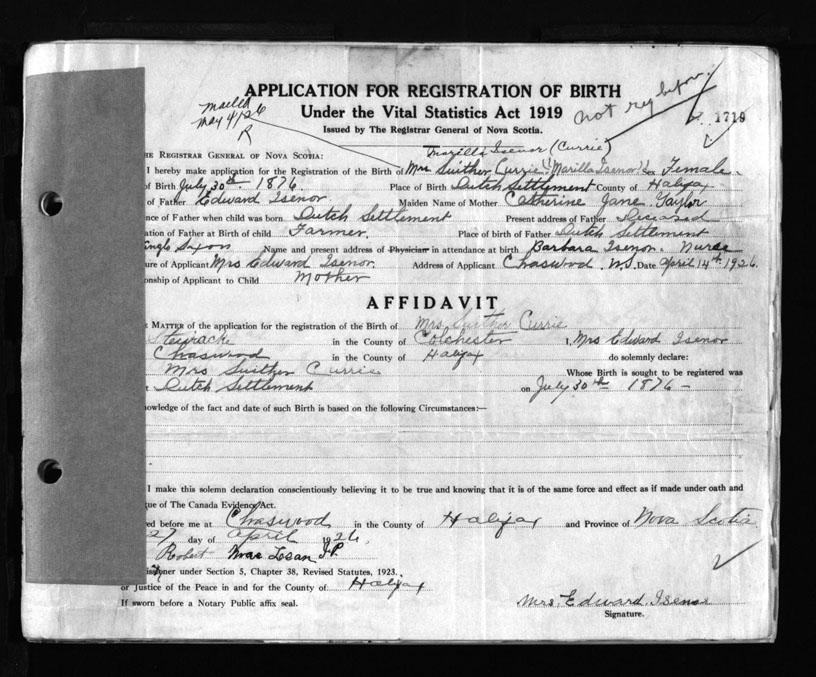 APPLICATION FOR REGISTRATION OF BIRTH
Under the Vital Statistics Act 1919
Issued by The Registrar General of Nova Scotia.
mailed
May 4/26
R
not reg before.
1719
Marilla Isenor (Currie)
THE REGISTRAR GENERAL OF NOVA SCOTIA:
I hereby make application for the Registration of the Birth of Mrs Suither Currie (Marilla Isenor) Sex Female.
of Birth July 30th 1876. Place of Birth Dutch Settlement County of Halifax
of Father Edward Isenor Maiden Name of Mother Catherine Jane Taylor
nce of Father when child was born Dutch Settlement Present address of Father Deceased
ation of Father at Birth of child Farmer. Place of birth of Father Dutch Settlement
Anglo Saxon Name and present address of Physician in attendance at birth Barbara Isenor. Nurse
ure of Applicant Mrs Edward Isenor. Address of Applicant Chaswood N.S. Date April 14th 1926.
onship of Applicant to Child Mother
AFFIDAVIT
MATTER of the application for the registration of the Birth of Mrs Suither Currie
in the County of Colchester I, Mrs Edward Isenor
Chaswood in the County of Halifax do solemnly declare:
Mrs Suither Currie Whose Birth is sought to be registered was
Dutch Settlement on July 30th 1876 -
nowledge of the fact and date of such Birth is based on the following Circumstances:—
I make this solemn declaration conscientiously believing it to be true and knowing that it is of the same force and effect as if made under oath and
que of The Canada Evidence Act.
ed before me at Chaswood in the County of Halifax and Province of Nova Scotia
27 day of April 1926.
Robert J.P.
sioner under Section 5, Chapter 38, Revised Statutes, 1923.
or Justice of the Peace in and for the County of Halifax
If sworn before a Notary Public affix seal.
Mrs. Edward. Isenor
Signature.